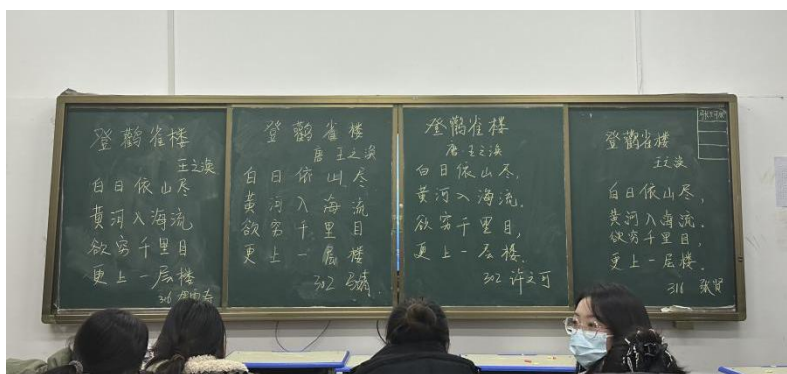 登鹳雀楼
王之涣
白日依山尽
黄河入海流
欲穷千里目
更上一层楼
登鹳雀楼
唐 王之涣
白日依山尽
黄河入海流
欲穷千里目
更上一层楼
302
登鹳雀楼
唐 王之涣
白日依山尽,
黄河入海流.
欲穷千里目,
更上一层楼.
302 许文可
登鹳雀楼
王之涣
白日依山尽,
黄河入海流.
欲穷千里目,
更上一层楼.
316 张贤